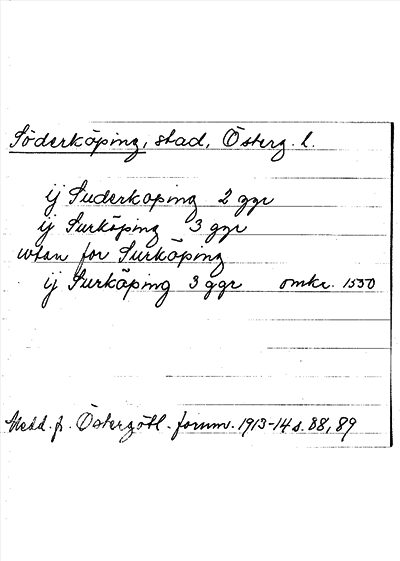 Söderköping, stad, Österg. l.
ij Suderkoping 2 ggr
ij Surköping 3 ggr
wtan for Surköping
ij Surköping 3 ggr omkr. 1550
Medd. fr. Östergötl. fornm. 1913-14 s. 88, 89